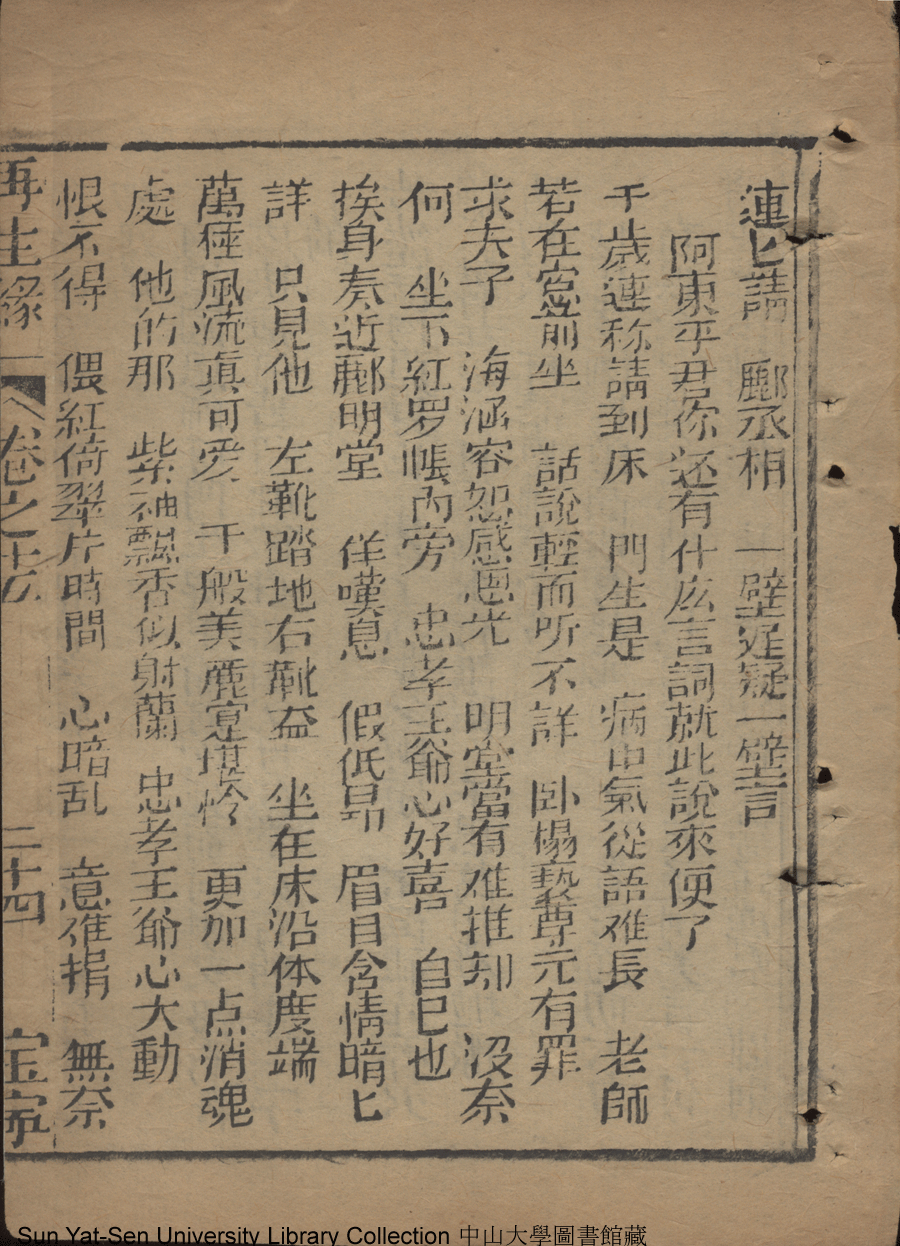 連匕請 酈丞相 一壁遲疑一壁言
阿東平君你还有什庅言詞就此說來便了
千歲連称請到床 門生是 病中氣從語难長 老師
若在窓前坐 話說輕而听不詳 卧榻䙝尊元有罪
求夫子 海涵容恕感恩光 明堂當有难推却 没奈
何 坐下紅罗帳內旁 忠孝王爺心好喜 自巳也
挨身奏近酈明堂 佯嘆息 假低昻 眉目含情暗匕
詳 只見他 左靴踏地右靴盖 坐在床沿体度端
萬種風流真可爱 千般美麗寔堪怜 更加一点消魂
處 他的那 紫袖飄香似射蘭 忠孝王爺心大動
恨不得 偎紅倚翠片時間 心暗乱 意难捐 無奈
再生緣 卷之 二十四
Sun Yat-Sen University Library Collection 中山大學圖書館藏